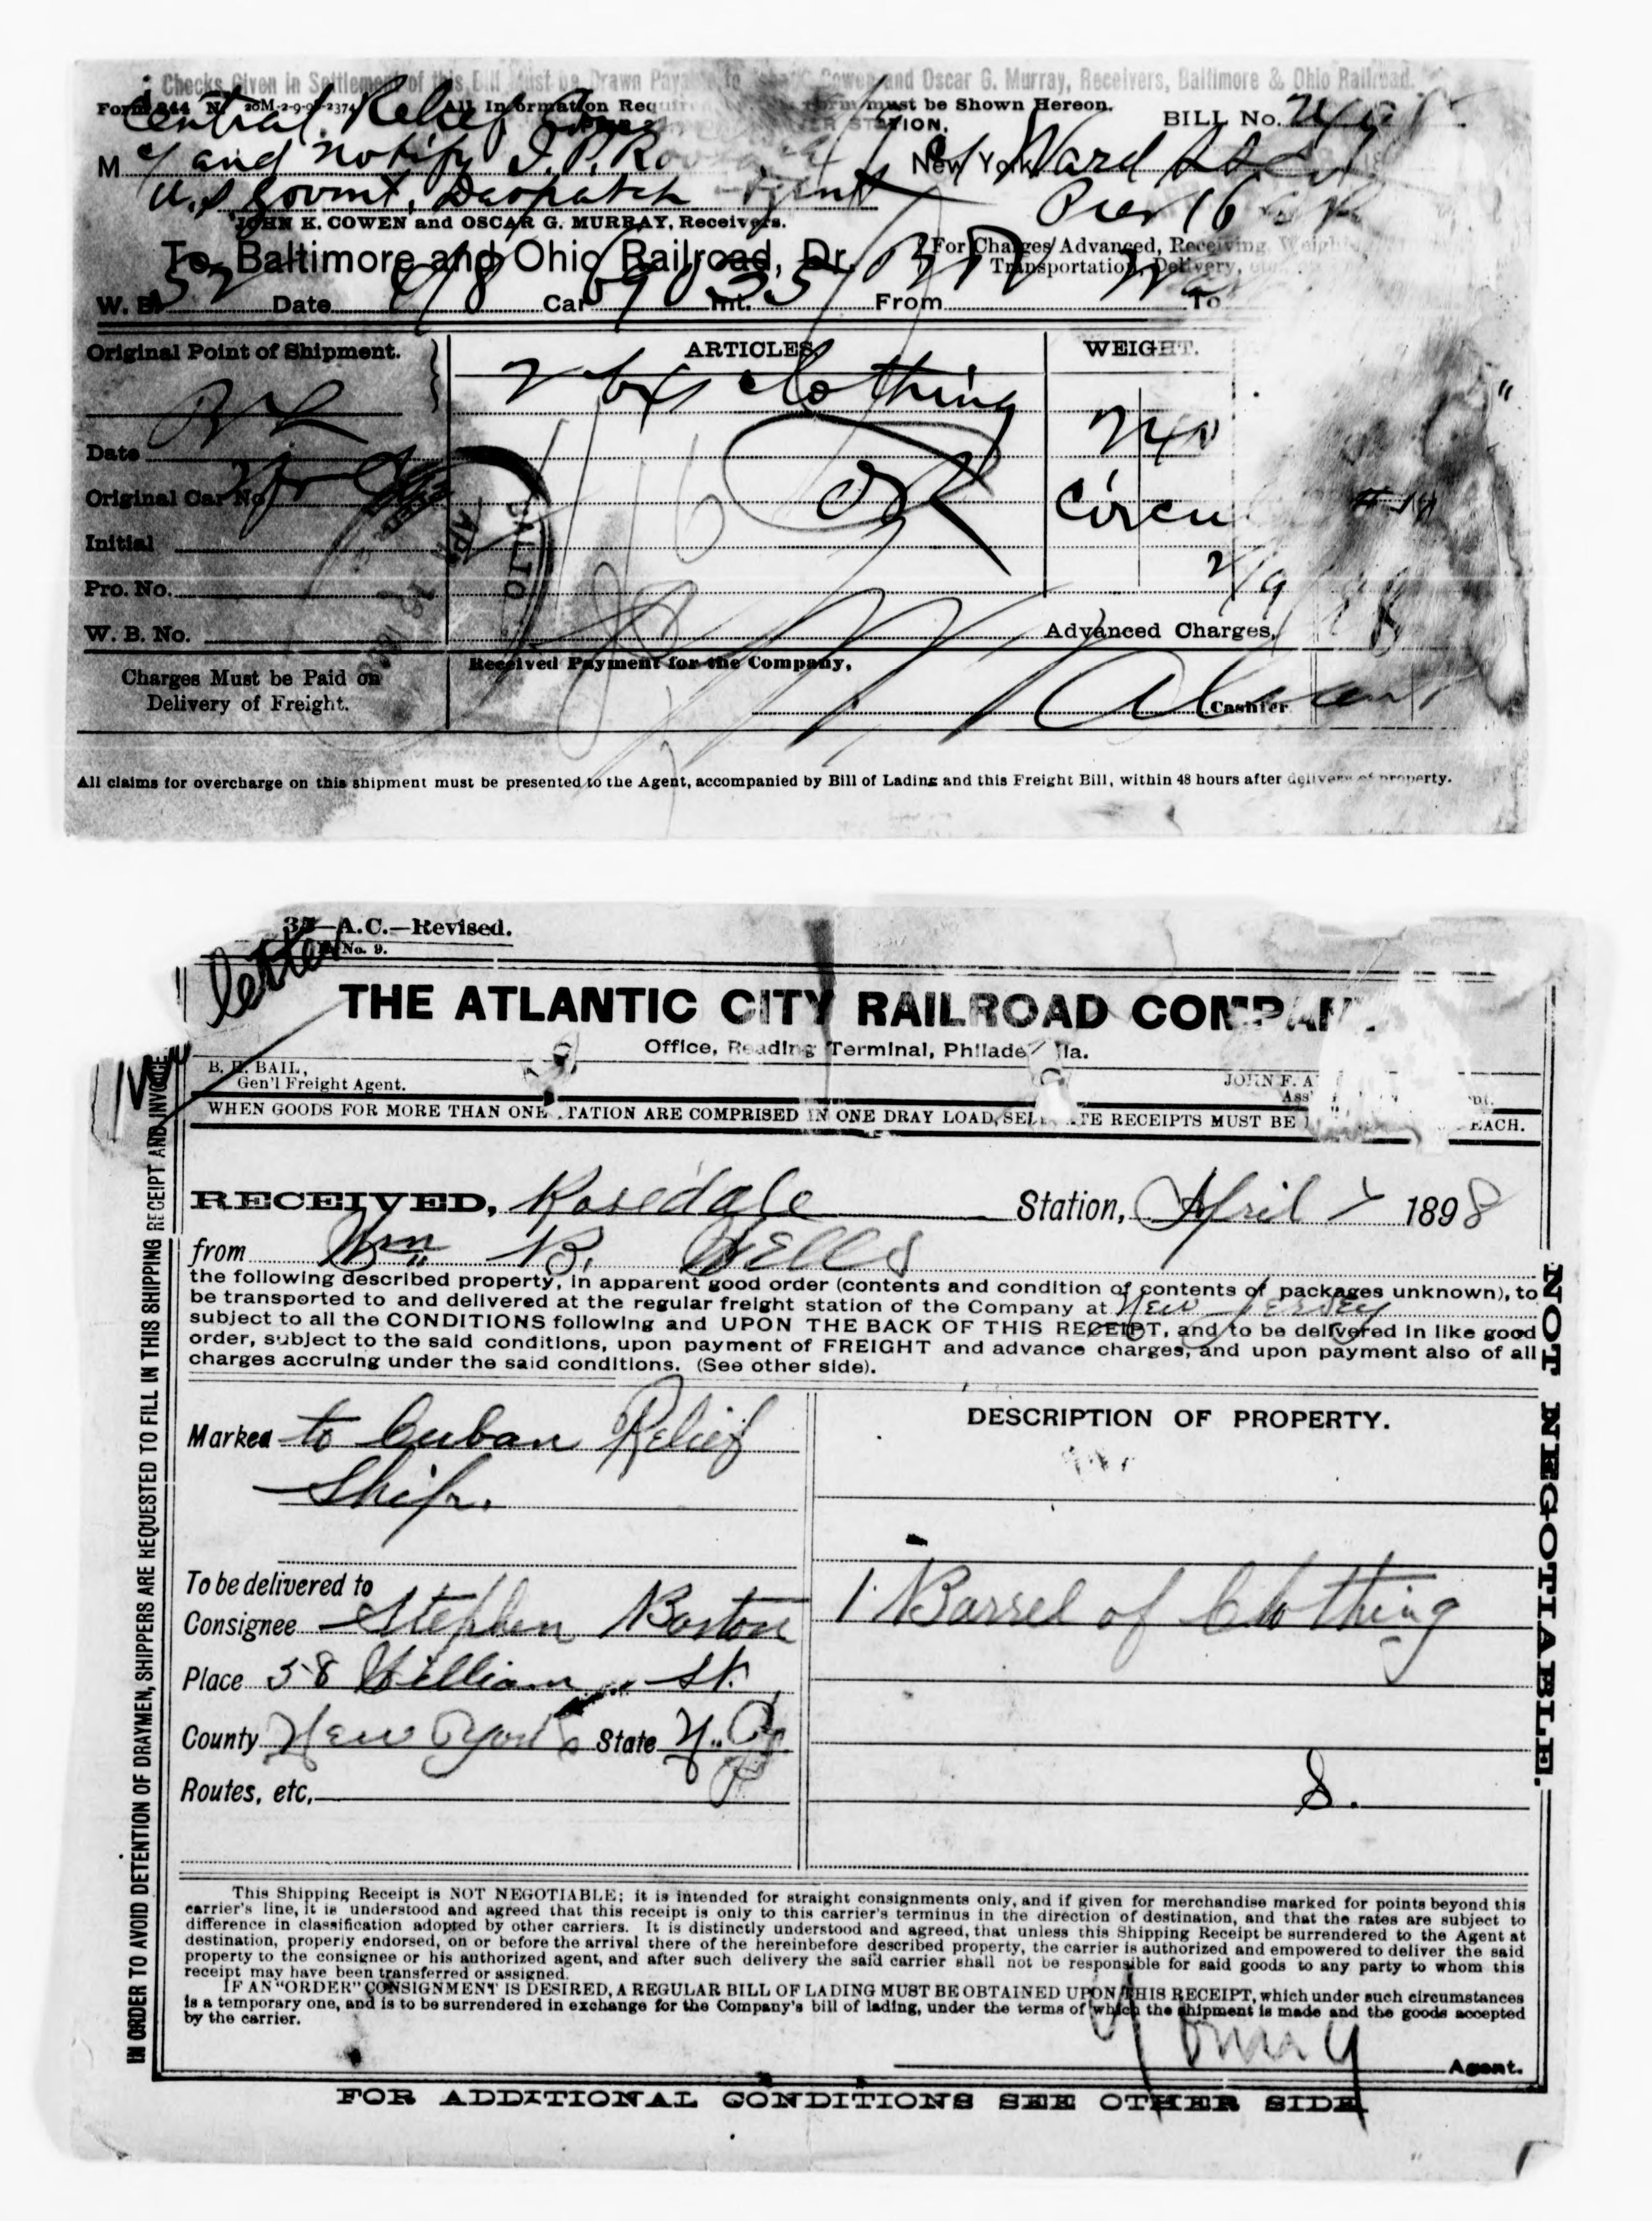 Checks Given in Settlement of this Bill Must be Drawn Payable to Cowen and Oscar G. Murray, Receivers, Baltimore & Ohio Railroad.
Form 844 N 20M-2-9-98-2374 All Information Required must be Shown Hereon.
STATION.
BILL No.
Central Relief Com
M c/ and notify J. P. R New York c/ Ward
U.S Govmt. Despatch Agent Pier 16 E R
JOHN K. COWEN and OSCAR G. MURRAY, Receivers.
To Baltimore and Ohio Railroad, Dr. For Charges Advanced, Receiving, Weighing
Transportation, Delivery, etc.
W. B. 52 Date 4/8 Car Int. From To
Original Point of Shipment. ARTICLES WEIGHT.
2 bxs clothing
240
Date
OK
Original Car No. Circu
APR BALTO
Initial
Pro. No.
W. B. No. Advanced Charges,
Charges Must be Paid on Received Payment for the Company,
Delivery of Freight. Cashier
All claims for overcharge on this shipment must be presented to the Agent, accompanied by Bill of Lading and this Freight Bill, within 48 hours after delivery of property.
35—A.C.—Revised.
No. 9.
letter
THE ATLANTIC CITY RAILROAD COMPAN
Office, Reading Terminal, Philade Pa.
B. H. BAIL, JOHN F. A
Gen'l Freight Agent. Ass
WHEN GOODS FOR MORE THAN ONE STATION ARE COMPRISED IN ONE DRAY LOAD, SEPARATE RECEIPTS MUST BE EACH.
RECEIVED, Rosedale Station, April 7 1898
from Wm B. WELLS
the following described property, in apparent good order (contents and condition of contents of packages unknown), to
be transported to and delivered at the regular freight station of the Company at New Jersey
subject to all the CONDITIONS following and UPON THE BACK OF THIS RECEIPT, and to be delivered in like good
order, subject to the said conditions, upon payment of FREIGHT and advance charges, and upon payment also of all
charges accruing under the said conditions. (See other side).
Marked to Cuban Relief
Ship.
DESCRIPTION OF PROPERTY.
To be delivered to
Consignee Stephen Barton
1 Barrel of Clothing
Place 58 William St.
County New York State N.Y
Routes, etc,
S.
This Shipping Receipt is NOT NEGOTIABLE; it is intended for straight consignments only, and if given for merchandise marked for points beyond this
carrier's line, it is understood and agreed that this receipt is only to this carrier's terminus in the direction of destination, and that the rates are subject to
difference in classification adopted by other carriers. It is distinctly understood and agreed, that unless this Shipping Receipt be surrendered to the Agent at
destination, properly endorsed, on or before the arrival there of the hereinbefore described property, the carrier is authorized and empowered to deliver the said
property to the consignee or his authorized agent, and after such delivery the said carrier shall not be responsible for said goods to any party to whom this
receipt may have been transferred or assigned.
IF AN "ORDER" CONSIGNMENT IS DESIRED, A REGULAR BILL OF LADING MUST BE OBTAINED UPON THIS RECEIPT, which under such circumstances
is a temporary one, and is to be surrendered in exchange for the Company's bill of lading, under the terms of which the shipment is made and the goods accepted
by the carrier.
Agent.
FOR ADDITIONAL CONDITIONS SEE OTHER SIDE
IN ORDER TO AVOID DETENTION OF DRAYMEN, SHIPPERS ARE REQUESTED TO FILL IN THIS SHIPPING RECEIPT AND INVOICE
NOT NEGOTIABLE.